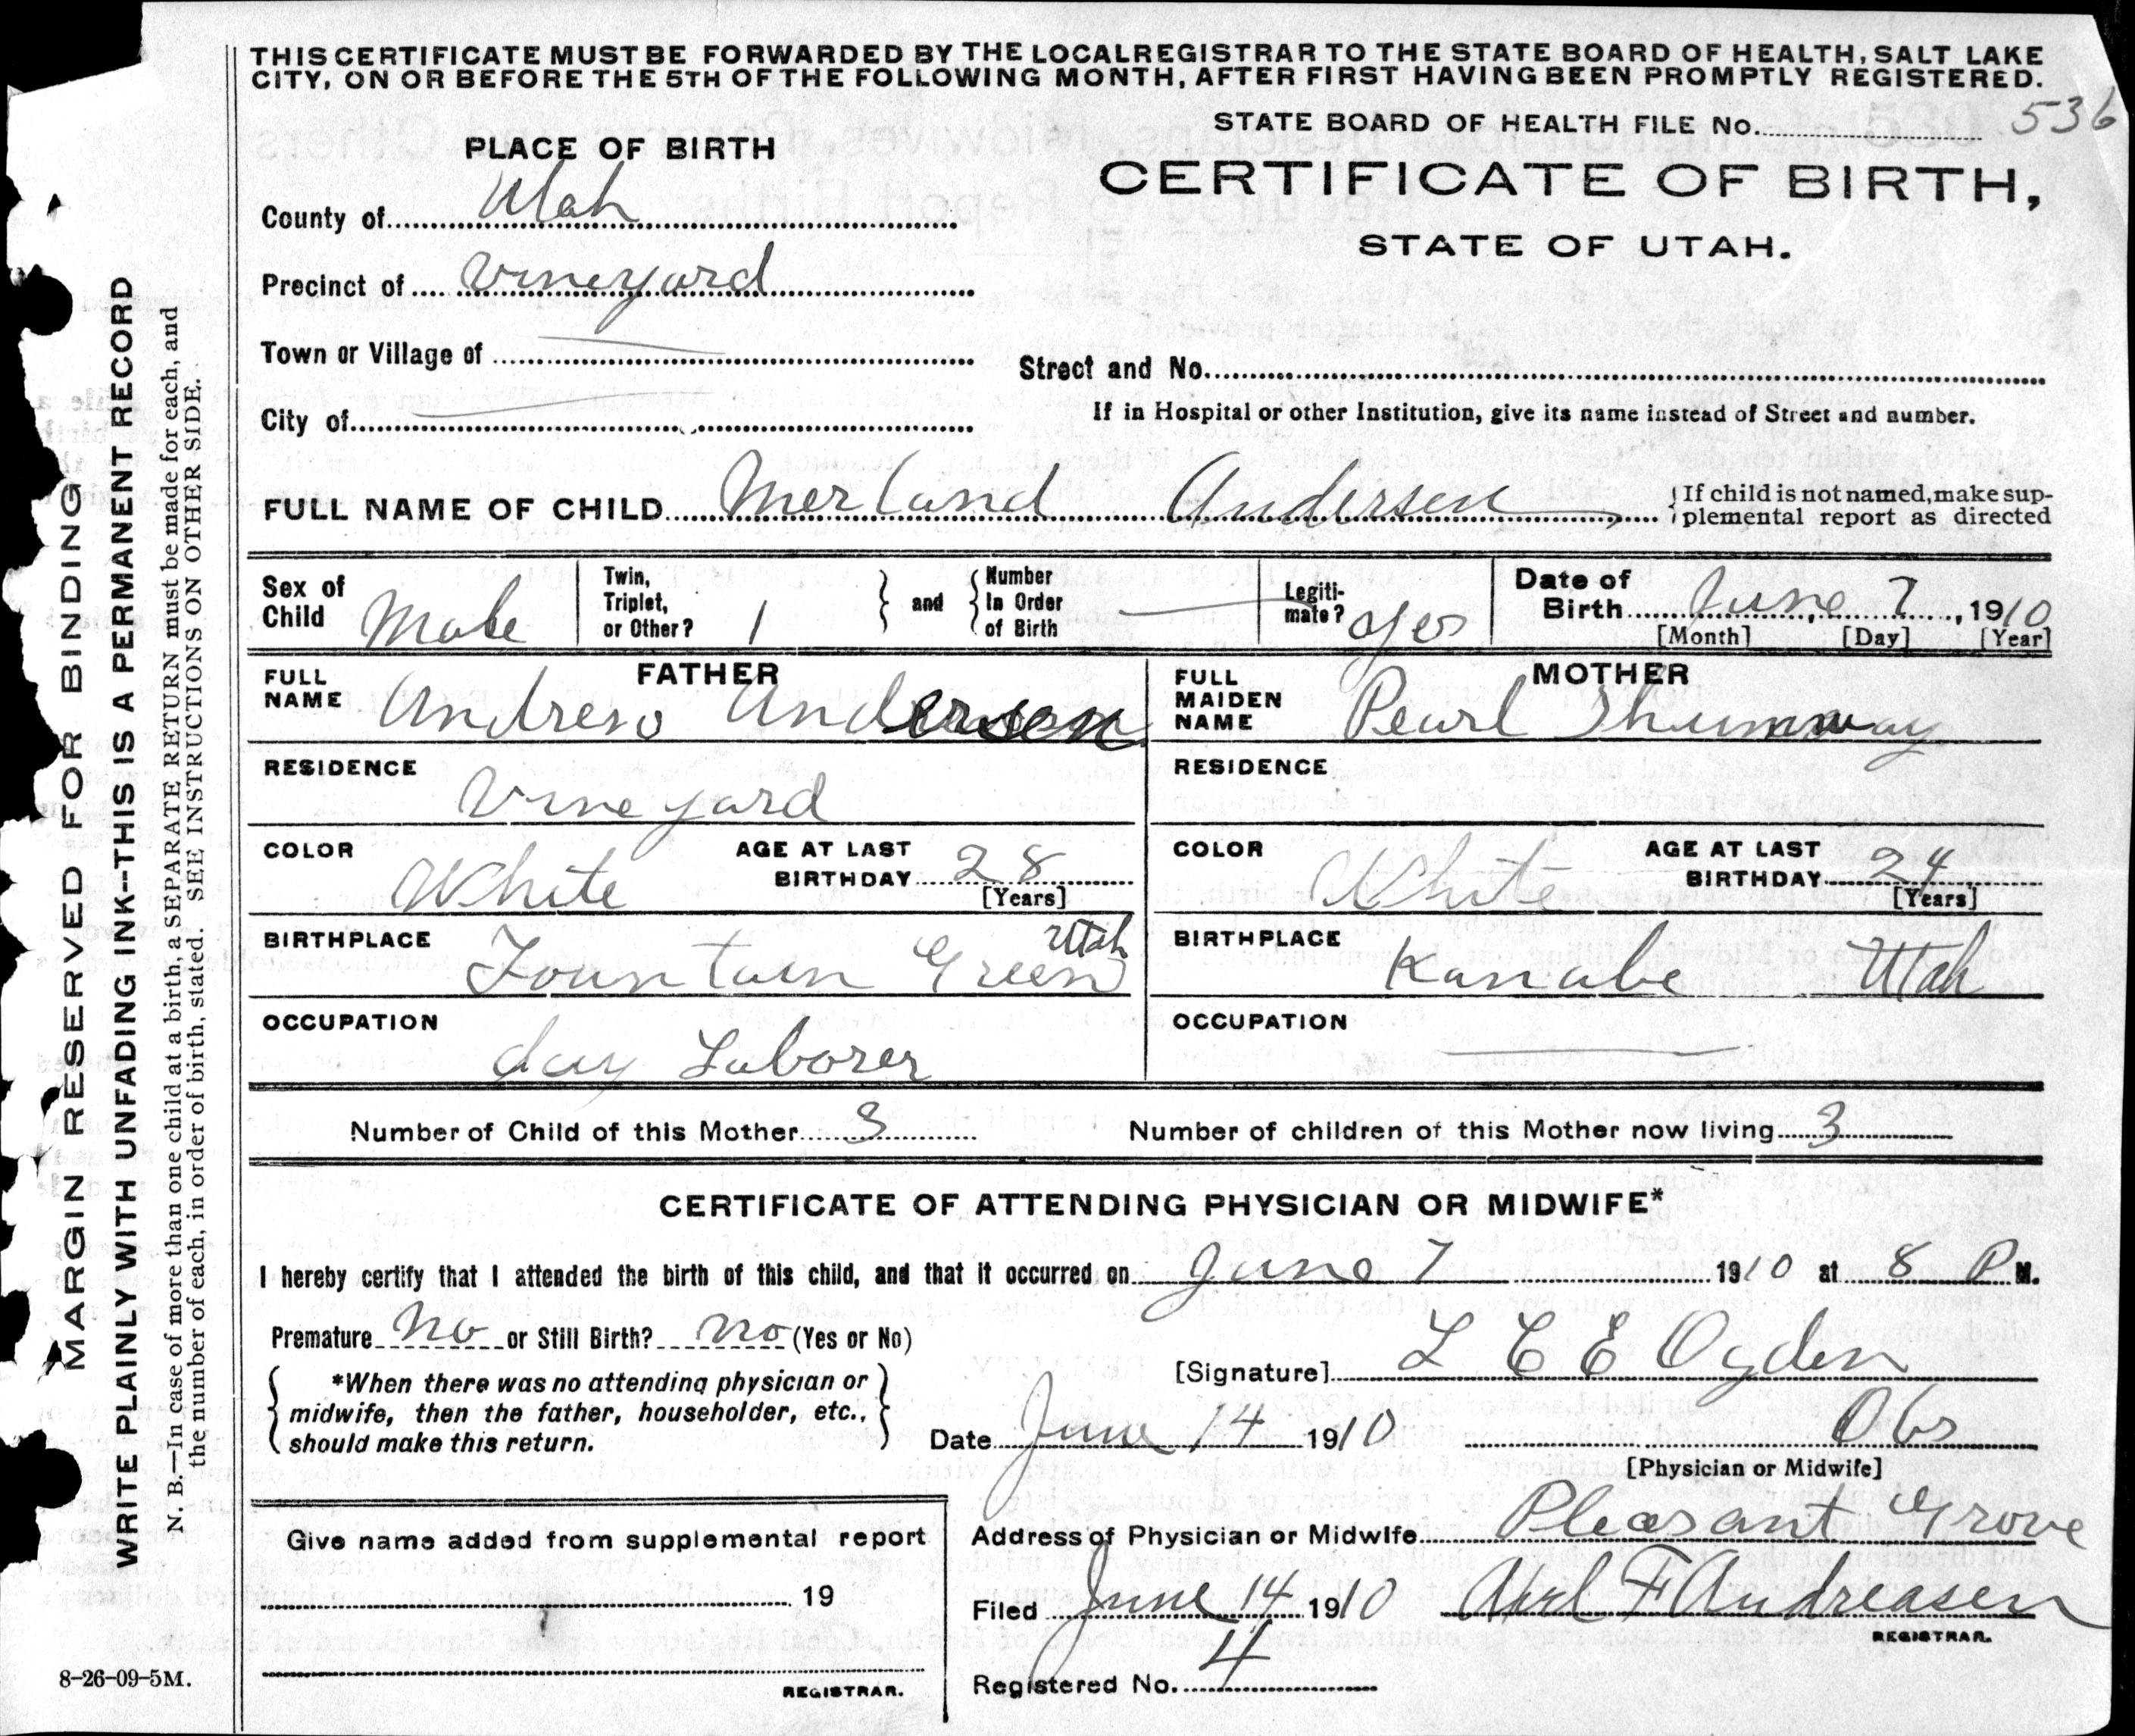 THIS CERTIFICATE MUST BE FORWARDED BY THE LOCAL REGISTRAR TO THE STATE BOARD OF HEALTH, SALT LAKE
CITY, ON OR BEFORE THE 5TH OF THE FOLLOWING MONTH, AFTER FIRST HAVING BEEN PROMPTLY REGISTERED.
STATE BOARD OF HEALTH FILE No. 536
PLACE OF BIRTH
CERTIFICATE OF BIRTH,
STATE OF UTAH.
County of Utah
Precinct of Vineyard
Town or Village of
Street and No.
City of
If in Hospital or other Institution, give its name instead of Street and number.
FULL NAME OF CHILD Merland Andersen
If child is not named, make sup-
plemental report as directed
Sex of Child Male
Twin, Triplet, or Other? 1
and
Number In Order of Birth
Legiti-mate? yes
Date of Birth June 7, 1910
[Month] [Day] [Year]
FATHER
FULL NAME Andrew Andersen
RESIDENCE Vineyard
COLOR White
AGE AT LAST BIRTHDAY 28
[Years]
BIRTHPLACE Fountain Green Utah
OCCUPATION day Laborer
MOTHER
FULL MAIDEN NAME Pearl Shumway
RESIDENCE
COLOR White
AGE AT LAST BIRTHDAY 24
[Years]
BIRTHPLACE Kanabe Utah
OCCUPATION
Number of Child of this Mother 3
Number of children of this Mother now living 3
CERTIFICATE OF ATTENDING PHYSICIAN OR MIDWIFE*
I hereby certify that I attended the birth of this child, and that it occurred on June 7 1910 at 8 P M.
Premature No or Still Birth? no (Yes or No)
*When there was no attending physician or
midwife, then the father, householder, etc.,
should make this return.
[Signature] L C E Ogden
Date June 14 1910 Obs
[Physician or Midwife]
Give name added from supplemental report
19
REGISTRAR.
Address of Physician or Midwife Pleasant Grove
Filed June 14 1910 F Andreasen
REGISTRAR.
Registered No. 4
MARGIN RESERVED FOR BINDING
WRITE PLAINLY WITH UNFADING INK--THIS IS A PERMANENT RECORD
N. B.—In case of more than one child at a birth, a SEPARATE RETURN must be made for each, and
the number of each, in order of birth, stated. SEE INSTRUCTIONS ON OTHER SIDE.
8-26-09-5M.